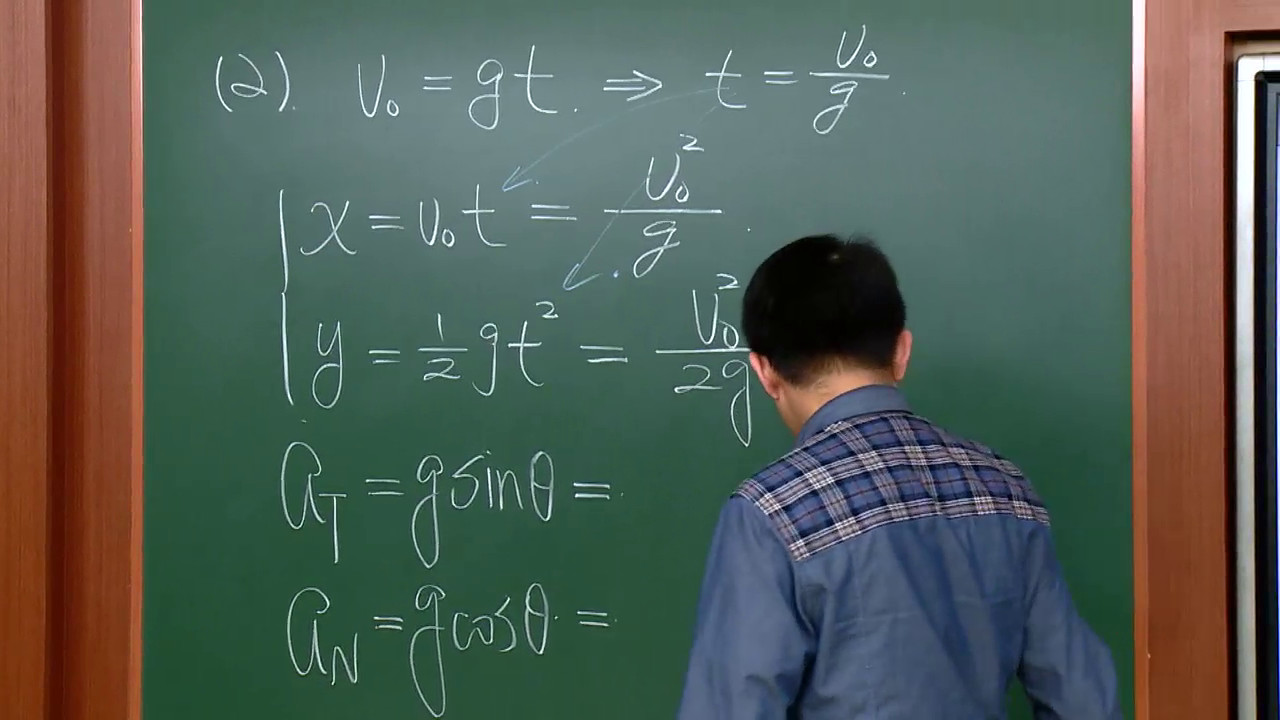 (2). v₀ = gt. ⇒ t = v₀/g.
x = v₀t = v₀²/g.
y = ½gt² = v₀²/2g
a_T = g sinθ =
a_N = g cosθ =